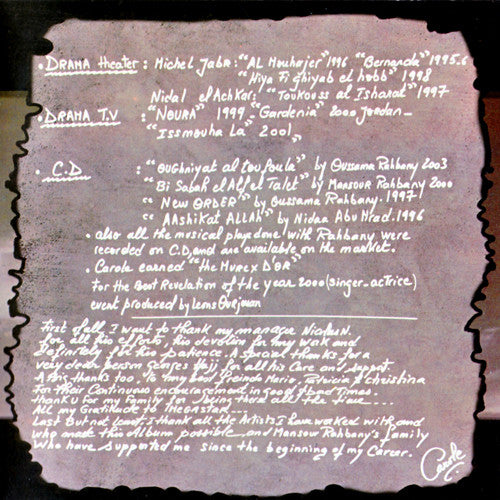 • DRAMA theater : Michel Jabr: "AL Mouhajer" 1996 "Bernanda" 1995.6
"Hiya Fi ghiyab el hobb" 1998
Nidal el Achkar: "Toukouss al Isharat" 1997
• DRAMA T.V : "NOURA" 1999 - "Gardenia" 2000 Jordan -
"Issmouha La" 2001
• C.D : "Oughniyat al toufoula" by Oussama Rahbany 2003
"Bi Sabah el Alf el Talet" by Mansour Rahbany 2000
"New ORDER" by Oussama Rahbany. 1997
"AAshikat ALLAH" by Nidaa Abu Mrad. 1996
• also all the musical plays done with Rahbany were
recorded on C.D, and are available on the market.
• Carole earned "the Murex D'OR"
For the Best Revelation of the year 2000 (singer_actrice)
event produced by
First of all, I want to thank my manager
for all his efforts, his devotion for my work and
Definitely for his patience. A special thanks for a
very dear person Georges Hajj for all his Care and support.
A Big thanks too, To my best friends Mario, Patricia & Christina
For their Continuous encouragement in good & bad Times.
thank U for my Family for being there all the time ...
All my Gratitude to THEGASTAR ...
Last But not least, I thank all the Artists I have worked with and
who made this Album possible and Mansour Rahbany's family
Who have supported me since the beginning of my Career.
Carole